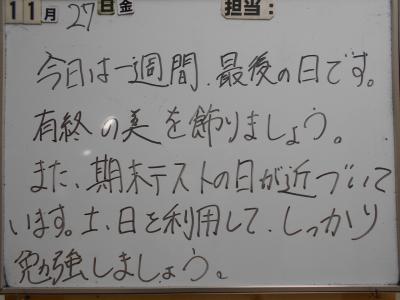 11月27日金 担当:
今日は一週間、最後の日です。
有終の美を飾りましょう。
また、期末テストの日が近づいて
います。土、日を利用して、しっかり
勉強しましょう。